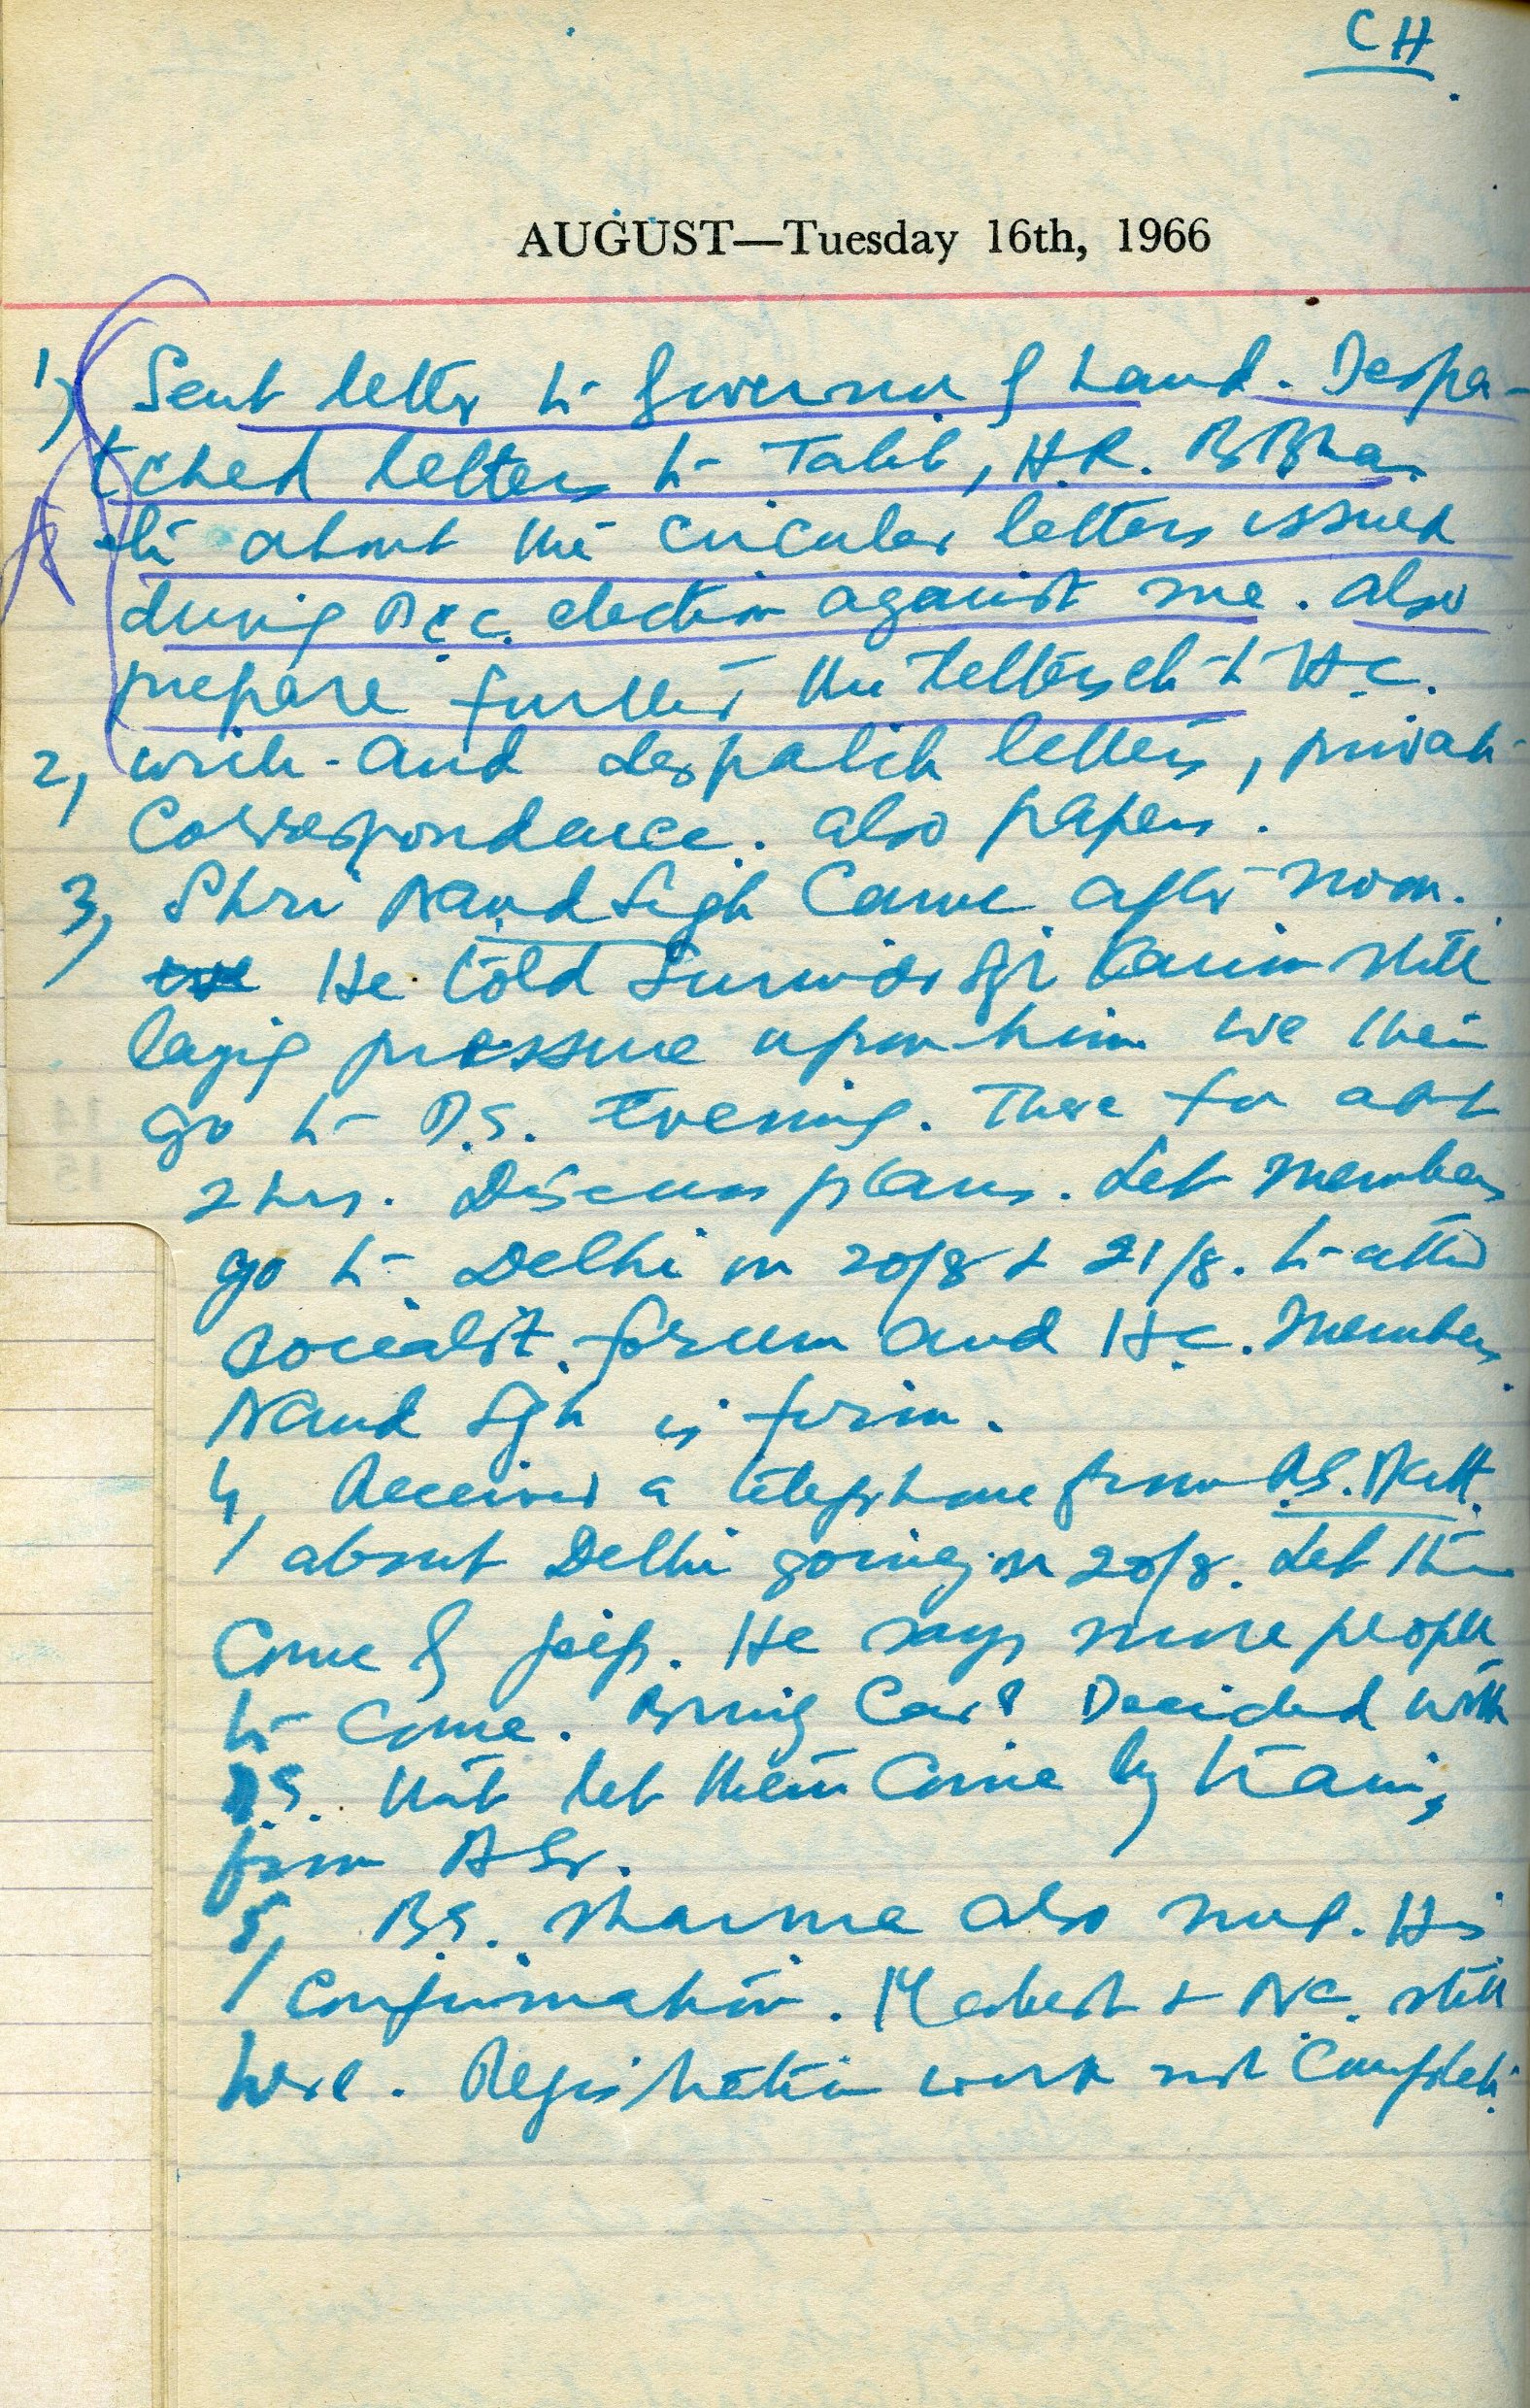 CH
AUGUST—Tuesday 16th, 1966
1) Sent letter to Governor by hand. Despa-
tched letters to Talib, H.R. B Bha
ti about the circular letters issued
during D.C.C. election against me. also
prepare further the letters to H.C.
2, write and despatch letters, private
Correspondence. also papers.
3, Shri Nand Sigh Came after noon.
He told still
laying pressure upon him we then
go to D.S. Evening. There for abt
2 hrs. Discuss plans. Let members
go to Delhi on 20/8 & 21/8. to attend
socialist forum and H.C. Members
Nand Sgh is firm.
4, Received a telephone from
about Delhi going on 20/8. Let
Come by jeep. He says more people
to Come. Bring Car? Decided with
D.S. that let them Come by train,
from ASr.
5, B.S. Sharma also met. His
Confirmation. & N.C. still
here. Registration work not Complete.